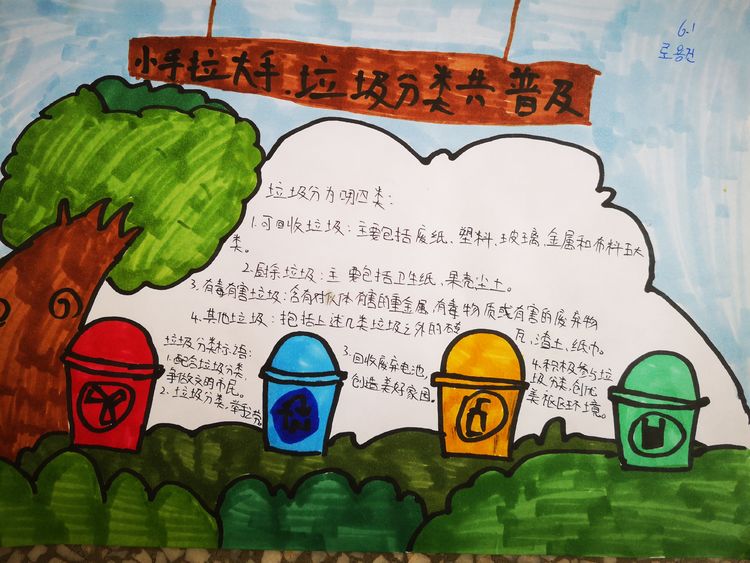 小手拉大手.垃圾分类共普及
6.1
垃圾分为哪四类：
1.可回收垃圾：主要包括废纸、塑料、玻璃、金属和布料五大
类。
2.厨余垃圾：主要包括卫生纸、果壳尘土。
3.有毒有害垃圾：含有对人体有害的重金属、有毒物质或有害的废弃物
4.其他垃圾：抱括上述几类垃圾之外的
瓦、渣土、纸巾。
垃圾分类标语：
1.配合垃圾分类、
争做文明市民。
2.垃圾分类、举手
3.回收废弃电池
创造美好家园。
4.积极参与垃
圾分类、创优
美社区环境。